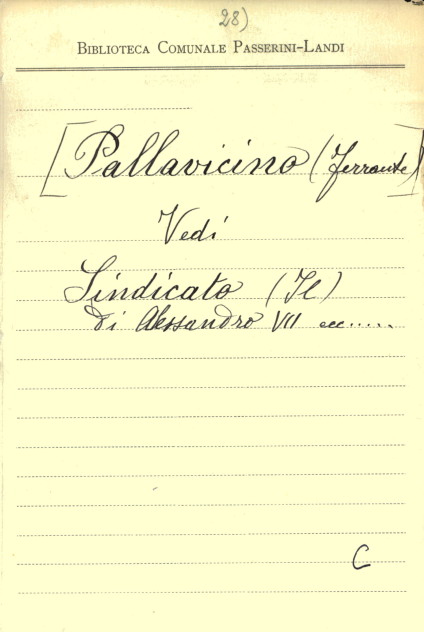 28)
BIBLIOTECA COMUNALE PASSERINI-LANDI
[Pallavicino (Ferrante)]
Vedi
Sindicato (Il)
di Alessandro VII ecc.....
C